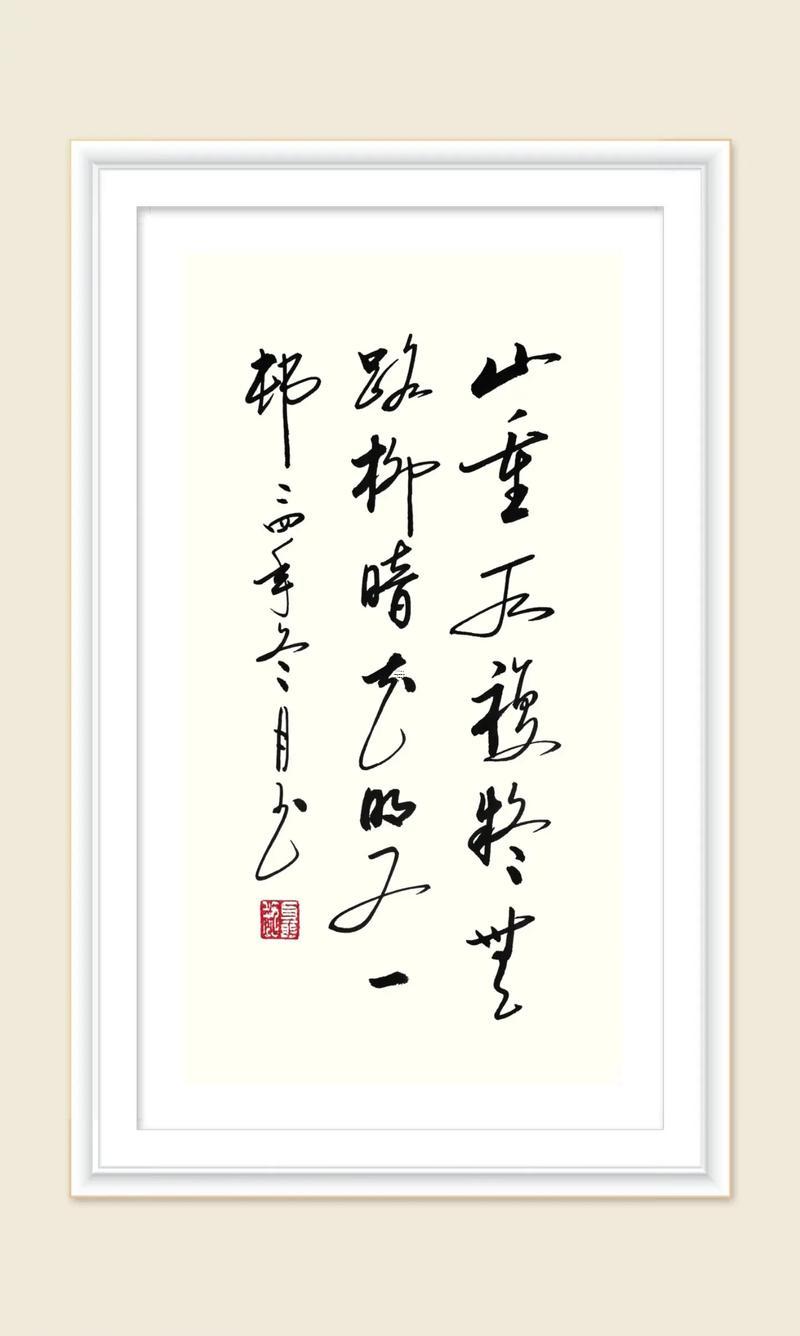 山重水複疑無
路柳暗花明又一
邨二四年冬月